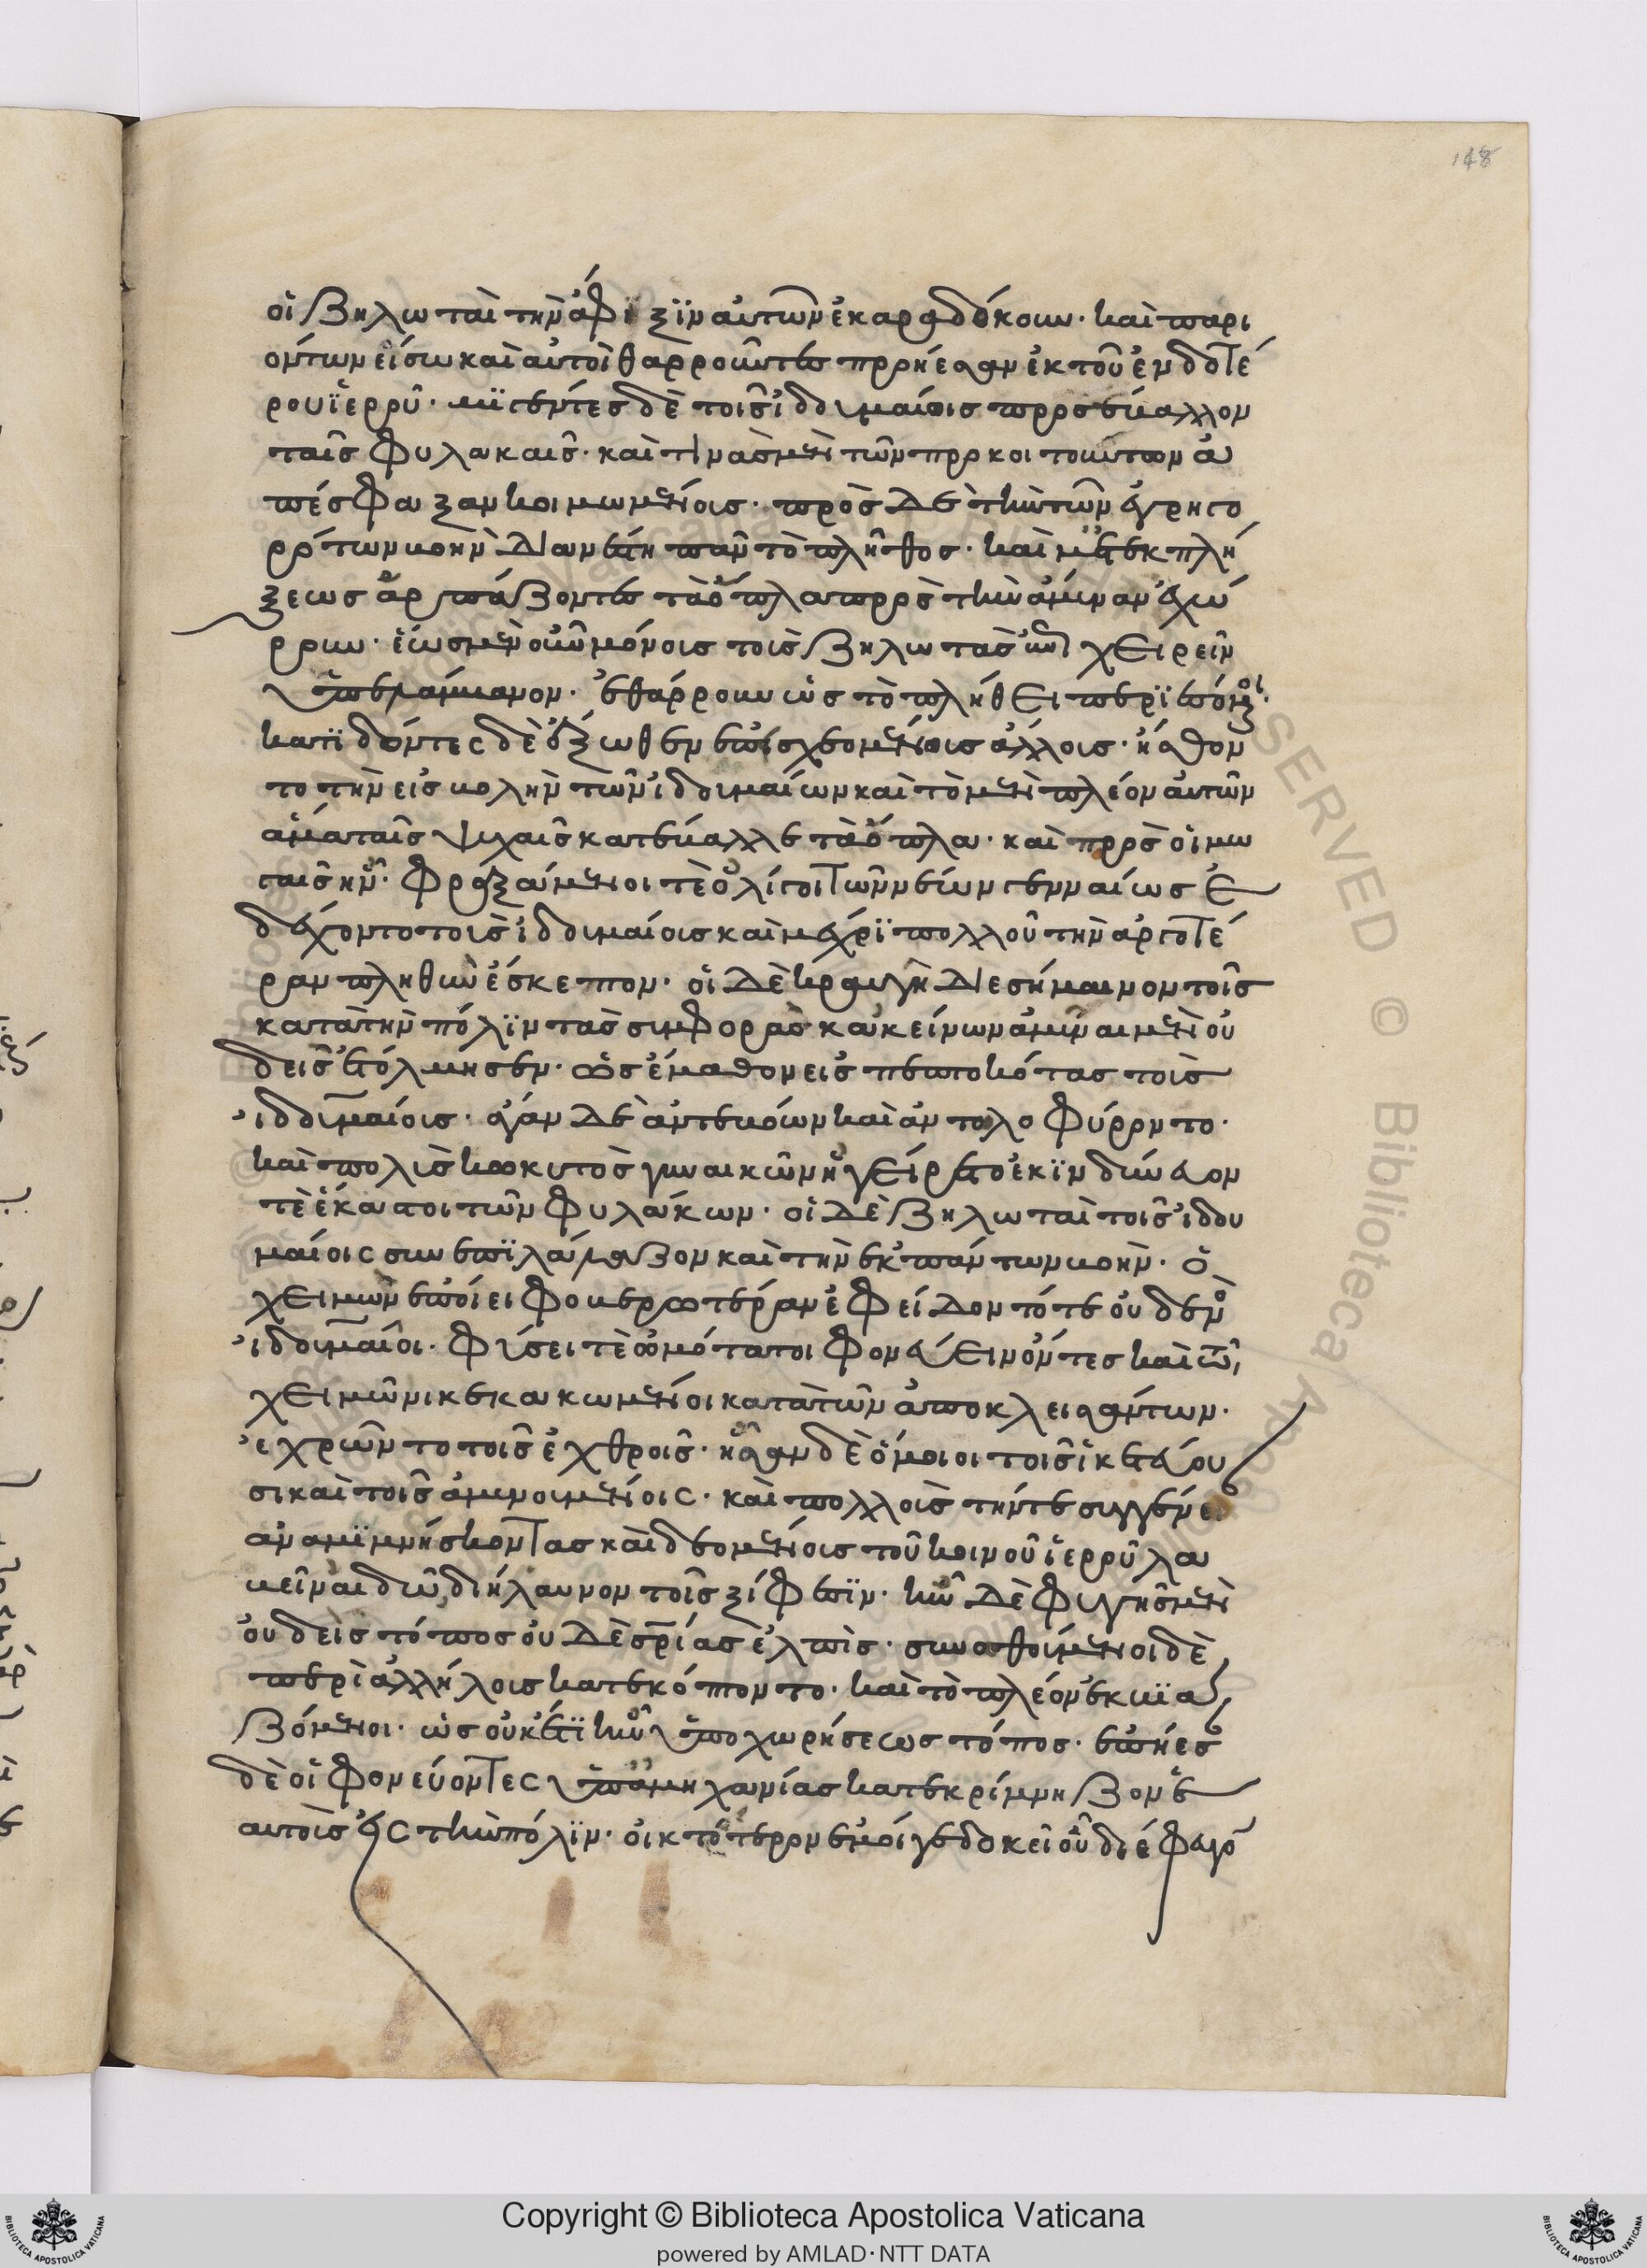 οἱ ζηλωταὶ τὴν ἄφϊξϊν αὐτῶν ἐκαραδόκουν· καὶ παρι
όντων εἴσω καὶ αὐτοὶ θαρροῦντες προήεσαν ἐκ τοῦ ἐνδοτέ
ρου ϊεροῦ· μιγέντες δὲ τοῖς ἰδουμαίοις προσέβαλλον
ταῖς φυλακαῖς· καὶ τινὰς μὲν τῶν προκοιτούντων ἀ
πέσφαξαν κοιμωμένους· πρὸς δὲ τὴν τῶν ἐγρηγο
ρότων βοὴν διανέστη πᾶν τὸ πλῆθος· καὶ μετ' ἐκπλή
ξεως ἁρπάζοντες τὰ ὅπλα πρὸς τὴν ἄμυναν ἐχώ
ρουν· ἕως μὲν οὖν μόνους τοὺς ζηλωτὰς ἐπιχειρεῖν
ὑπελάμβανον· ἐθάρρουν ὡς τὸ πλήθει περϊεσόμενοι·
κατϊδόντες δὲ ἔξωθεν ἐπεισχεομένους ἄλλους· ἤσθον
το τὴν εἰσβολὴν τῶν ἰδουμαίων καὶ τὸ μὲν πλέον αὐτῶν
ἅμα ταῖς ψυχαῖς κατέβαλλε τὰ ὅπλα· καὶ πρὸς οἰμω
γαῖς ἦν· φραξάμενοι τὲ ὀλίγοι τῶν νέων γενναίως ἐ
δέχοντο τοὺς ἰδουμαίους καὶ μέχρϊ πολλοῦ τὴν ἀργοτέ
ραν πληθὺν ἔσκεπον· οἱ δὲ κραυγῆ διεσήμαινον τοῖς
κατὰ τὴν πόλϊν τὰς συμφορὰς· κἀκείνων ἀμῦναι μὲν οὐ
δεὶς ἐτόλμησεν· ὡς ἔμαθον εἰσπεπαικότας τοὺς
ἰδουμαίους· δὲ ἀντεβόων καὶ ἀντολοφύροντο·
καὶ πολὺς κωκυτὸς γυναικῶν ἠγείρετο ἐκϊνδύνευον
τὲ ἕκαστοι τῶν φυλάκων· οἱ δὲ ζηλωταὶ τοῖς ἰδου
μαίοις συνεπϊλάλαζον καὶ τὴν ἐκ πάντων βοὴν· ὁ
χειμὼν ἐποίει φοβερωτέραν ἐφείδοντό τε οὐδενὸς
ἰδουμαῖοι· φύσει τὲ ὠμότατοι φονεύειν ὄντες καὶ τῶ
χειμῶνι κεκακωμένοι κατὰ τῶν ἀποκλεισάντων·
ἐχρῶντο τοῖς ἐχθροῖς· ἦσαν δὲ ὅμοιοι τοῖς ἱκετεύου
σι καὶ τοῖς ἀμυνομένοις· καὶ πολλοὺς τήν τε συγγένει
αν αναμϊμνήσκοντας καὶ δεομένους τοῦ κοινοῦ ἱεροῦ λα
βεῖν αἰδῶ διήλαυνον τοῖς ξίφεσϊν· ἦν δὲ φυγῆς μὲν
οὐδεὶς τόπος οὐδὲ σρίας ἐλπὶς· συνωθούμενοι δὲ
περὶ ἀλλήλους κατεκόπτοντο· καὶ τὸ πλέον ἐκβϊα
ζόμενοι· ὡς οὐκέτϊ ἦν ὑποχωρήσεως τόπος· ἐπήεσαν
δὲ οἱ φονεύοντες ὑπ' ἀμηχανίας κατεκρίμνηζον ἑ
αυτοὺς εἰς τὴν πόλϊν· οἰκτρότερον ἔμοίγε δοκεῖ οὗ διέφευγον